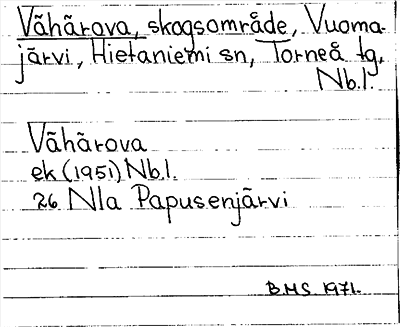 Vähärova, skogsområde, Vuoma-
järvi, Hietaniemi sn, Torneå tg,
Nb.l.
Vähärova
ek (1951) Nb.l.
26 Nla Papusenjärvi
B.M.S. 1971.